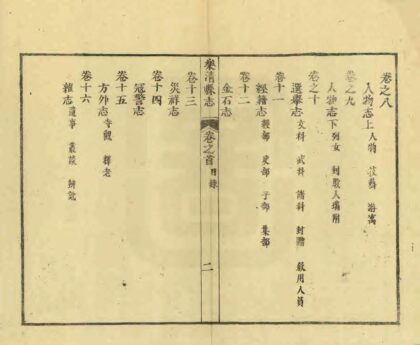 卷之八
人物志上 人物 技藝 游寓
卷之九
人物志下 列女 封蔭人瑞附
卷之十
選舉志 文科 武科 諸科 封贈 錄用人員
卷十一
經籍志 經部 史部 子部 集部
卷十二
金石志
樂清縣志 卷之首 目錄 二
卷十三
災祥志
卷十四
寇警志
卷十五
方外志 寺觀 釋老
卷十六
雜志 遺事 叢談 辨訛